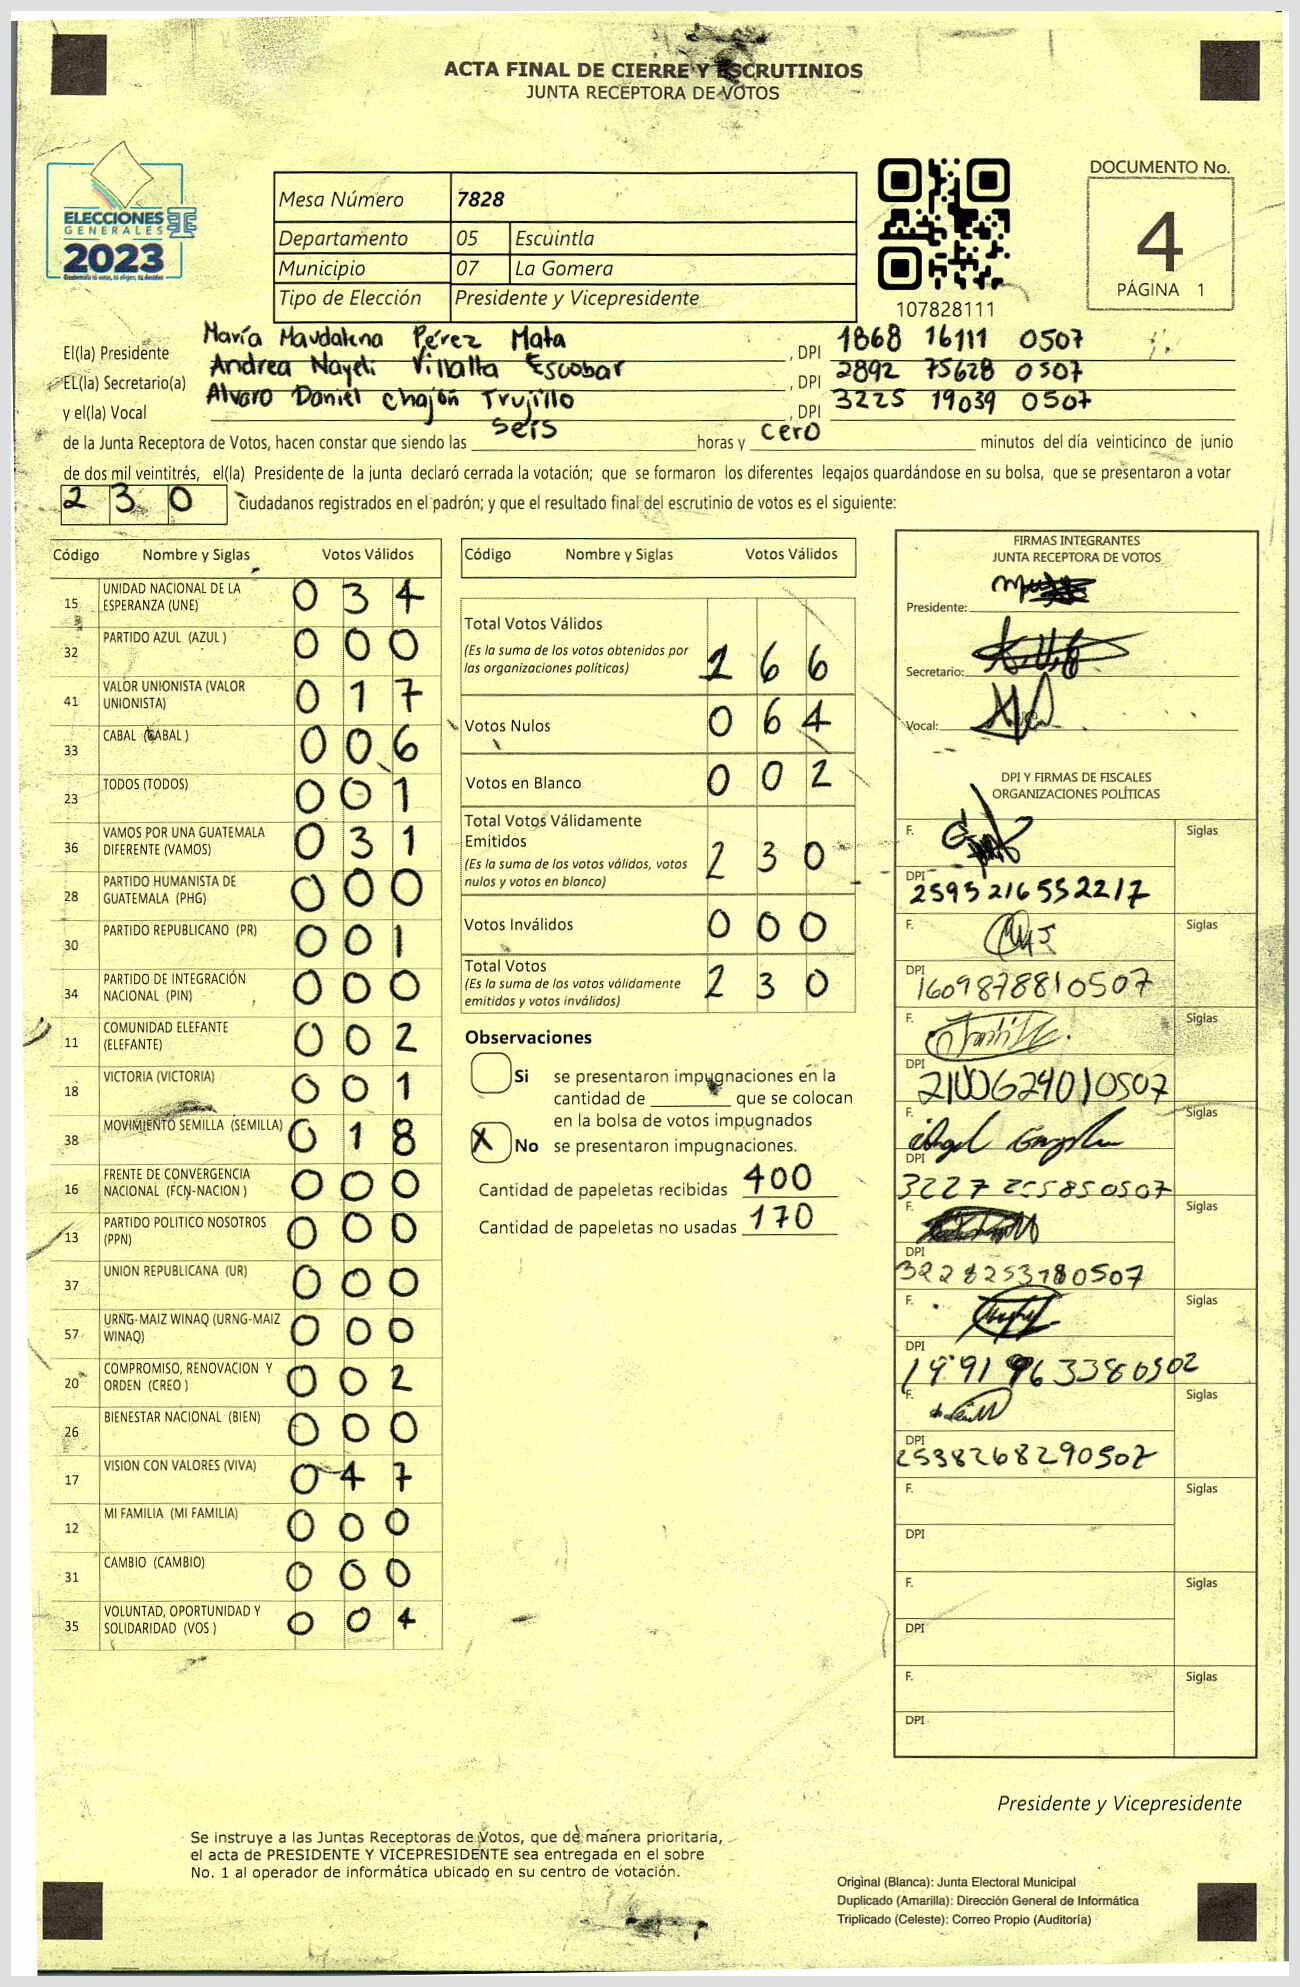 ACTA FINAL DE CIERRE Y ESCRUTINIOS
JUNTA RECEPTORA DE VOTOS
ELECCIONES
GENERALES
2023
Mesa Número 7828
Departamento 05 Escuintla
Municipio 07 La Gomera
Tipo de Elección Presidente y Vicepresidente
107828111
DOCUMENTO No.
4
PÁGINA 1
El(la) Presidente María Maudalena Pérez Mata , DPI 1868 16111 0507
EL(la) Secretario(a) Andrea Nayeli Villalta Escobar , DPI 2892 75628 0507
y el(la) Vocal Alvaro Daniel Chajón Trujillo , DPI 3225 19039 0507
de la Junta Receptora de Votos, hacen constar que siendo las seis horas y cero minutos del día veinticinco de junio
de dos mil veintitrés, el(la) Presidente de la junta declaró cerrada la votación; que se formaron los diferentes legajos quardándose en su bolsa, que se presentaron a votar
230 ciudadanos registrados en el padrón; y que el resultado final del escrutinio de votos es el siguiente:
Código Nombre y Siglas Votos Válidos
15 UNIDAD NACIONAL DE LA ESPERANZA (UNE) 034
32 PARTIDO AZUL (AZUL ) 000
41 VALOR UNIONISTA (VALOR UNIONISTA) 017
33 CABAL (CABAL ) 006
23 TODOS (TODOS) 001
36 VAMOS POR UNA GUATEMALA DIFERENTE (VAMOS) 031
28 PARTIDO HUMANISTA DE GUATEMALA (PHG) 000
30 PARTIDO REPUBLICANO (PR) 001
34 PARTIDO DE INTEGRACIÓN NACIONAL (PIN) 000
11 COMUNIDAD ELEFANTE (ELEFANTE) 002
18 VICTORIA (VICTORIA) 001
38 MOVIMIENTO SEMILLA (SEMILLA) 018
16 FRENTE DE CONVERGENCIA NACIONAL (FCN-NACION ) 000
13 PARTIDO POLITICO NOSOTROS (PPN) 000
37 UNION REPUBLICANA (UR) 000
57 URNG-MAIZ WINAQ (URNG-MAIZ WINAQ) 000
20 COMPROMISO, RENOVACION Y ORDEN (CREO ) 002
26 BIENESTAR NACIONAL (BIEN) 000
17 VISION CON VALORES (VIVA) 047
12 MI FAMILIA (MI FAMILIA) 000
31 CAMBIO (CAMBIO) 000
35 VOLUNTAD, OPORTUNIDAD Y SOLIDARIDAD (VOS ) 004
Código Nombre y Siglas Votos Válidos
Total Votos Válidos
(Es la suma de los votos obtenidos por
las organizaciones políticas) 166
Votos Nulos 064
Votos en Blanco 002
Total Votos Válidamente
Emitidos
(Es la suma de los votos válidos, votos
nulos y votos en blanco) 230
Votos Inválidos 000
Total Votos
(Es la suma de los votos válidamente
emitidos y votos inválidos) 230
Observaciones
Si se presentaron impugnaciones en la
cantidad de ________ que se colocan
en la bolsa de votos impugnados
X No se presentaron impugnaciones.
Cantidad de papeletas recibidas 400
Cantidad de papeletas no usadas 170
FIRMAS INTEGRANTES
JUNTA RECEPTORA DE VOTOS
Presidente:
Secretario:
Vocal:
DPI Y FIRMAS DE FISCALES
ORGANIZACIONES POLÍTICAS
F. Siglas
DPI 2593216552217
F. Siglas
DPI 1609878810507
F. Siglas
DPI 2100624010507
F. Siglas
DPI
F. Siglas
DPI 3228253780507
F. Siglas
DPI
F. Siglas
DPI 2538268290507
F. Siglas
DPI
F. Siglas
DPI
F. Siglas
DPI
Presidente y Vicepresidente
Se instruye a las Juntas Receptoras de Votos, que de manera prioritaria,
el acta de PRESIDENTE Y VICEPRESIDENTE sea entregada en el sobre
No. 1 al operador de informática ubicado en su centro de votación.
Original (Blanca): Junta Electoral Municipal
Duplicado (Amarilla): Dirección General de Informática
Triplicado (Celeste): Correo Propio (Auditoría)